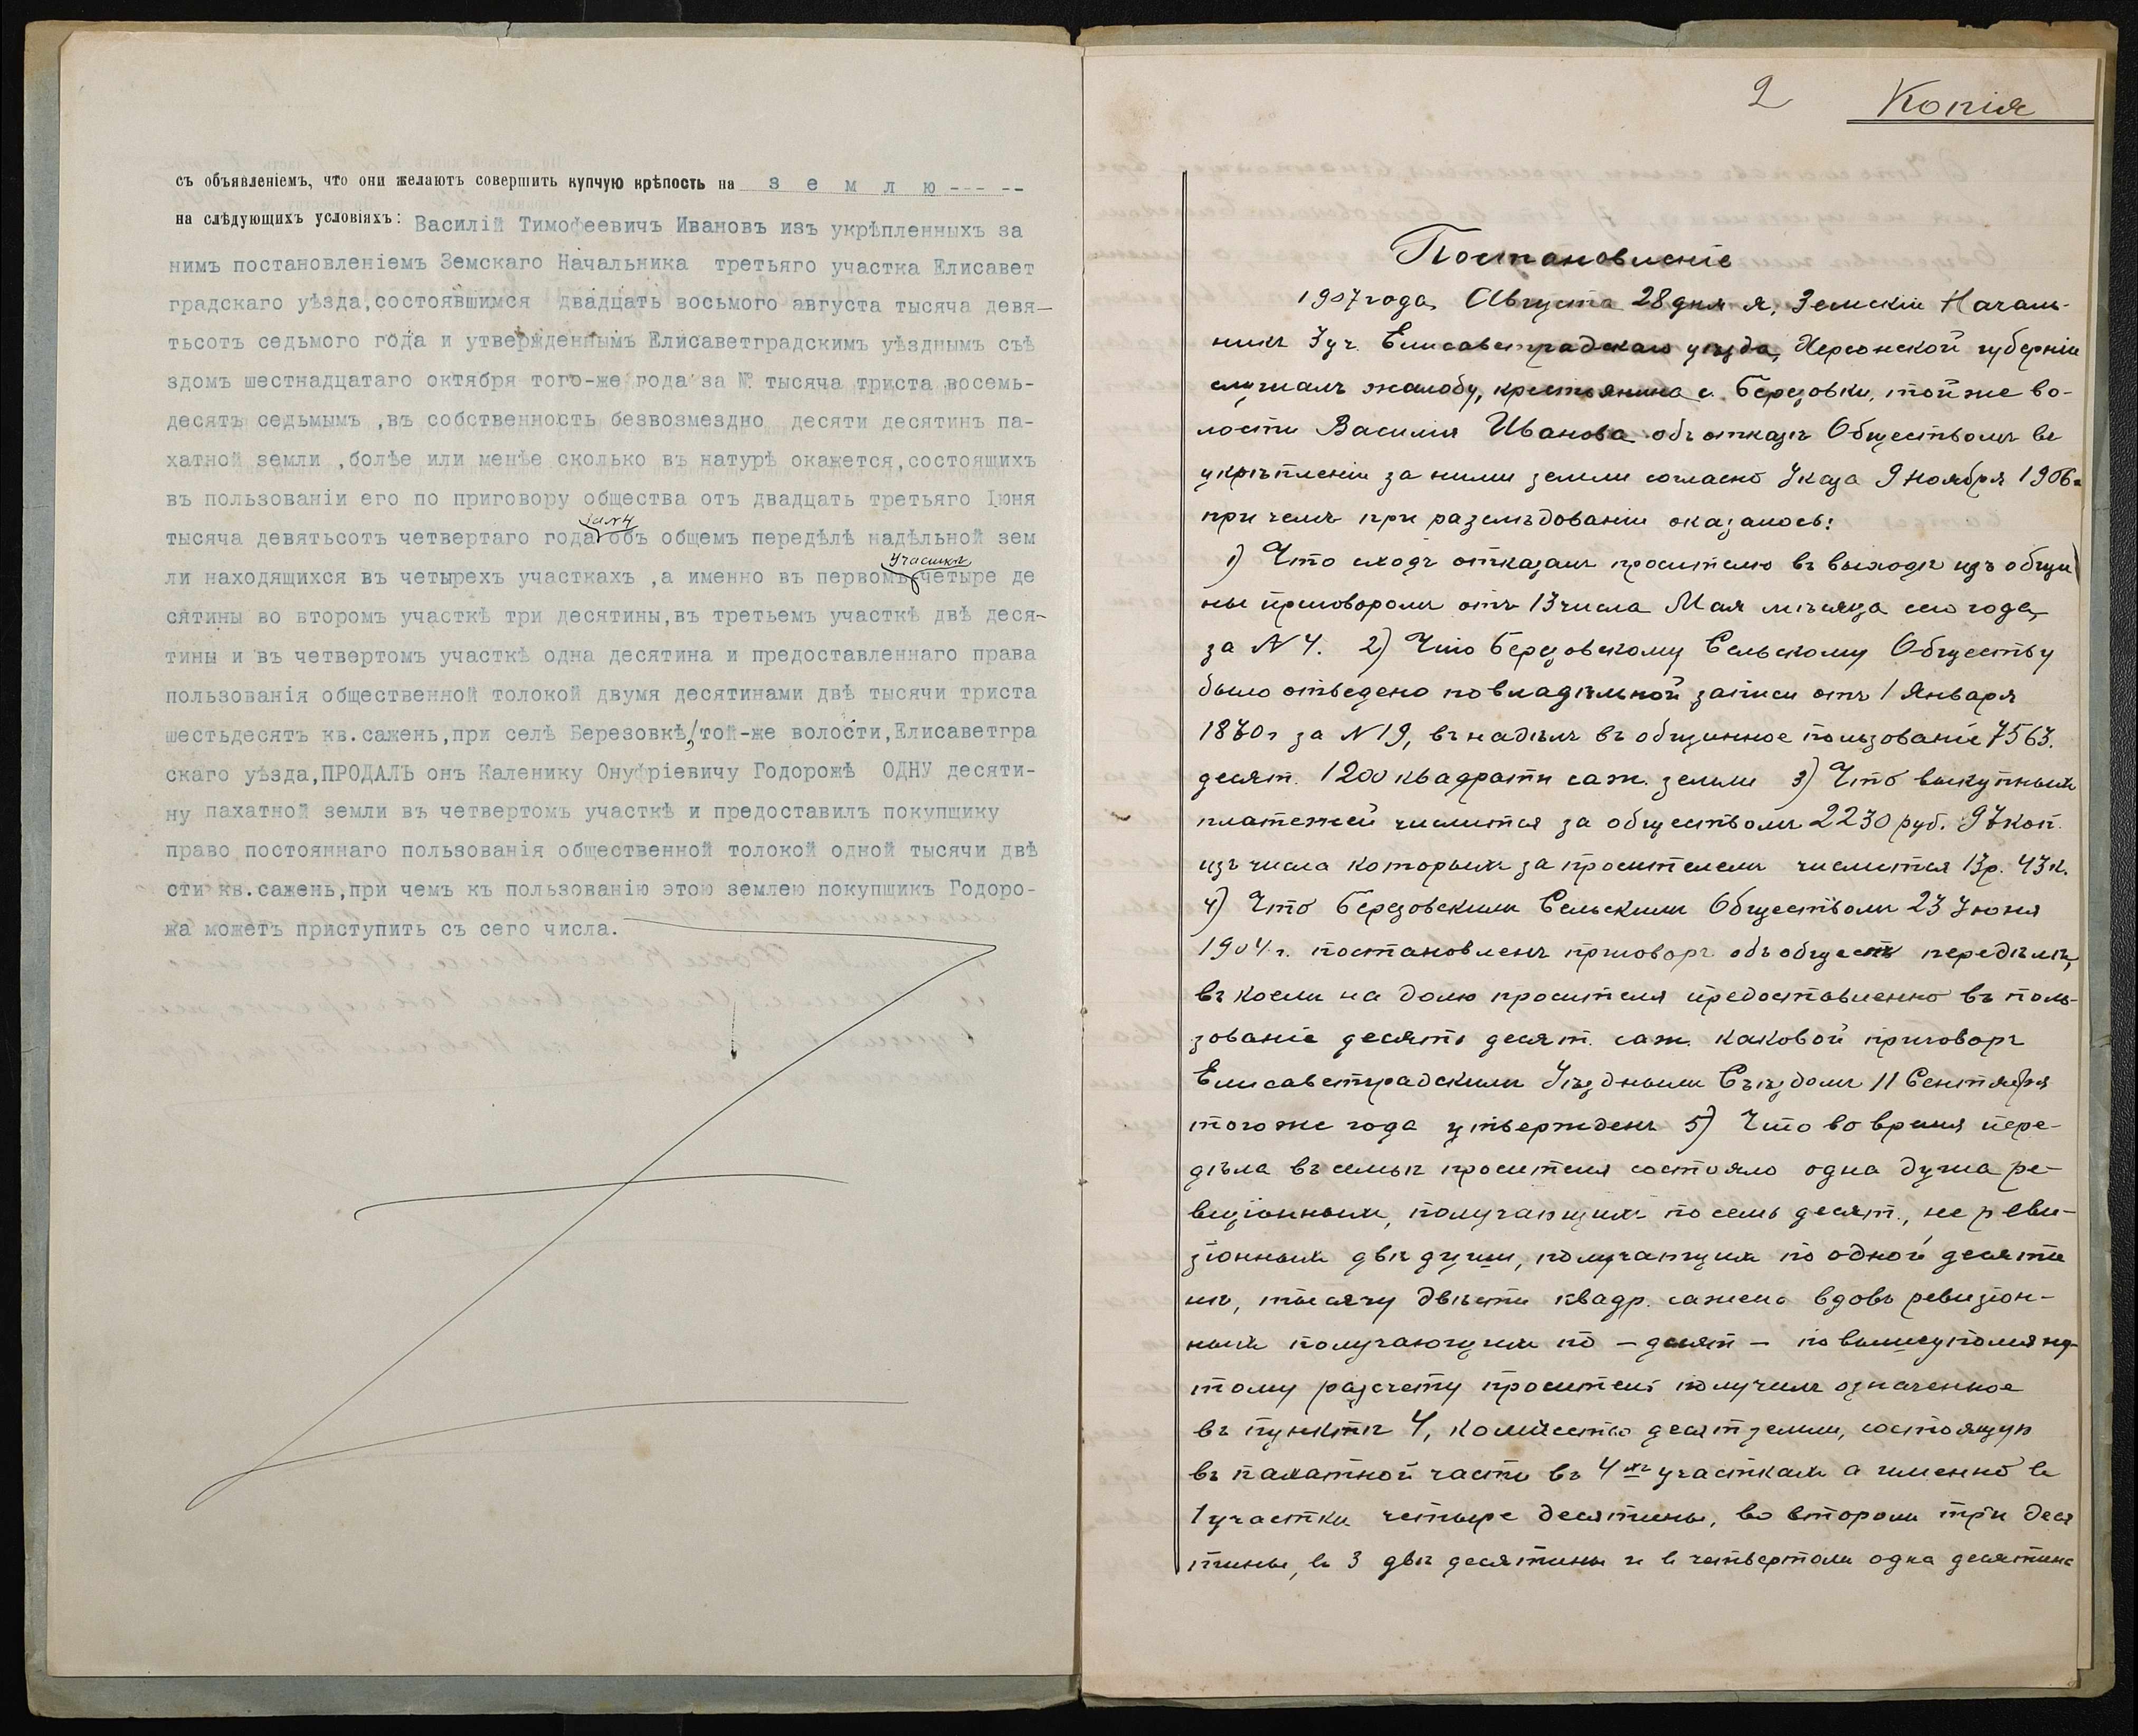 съ объявленіемъ, что они желаютъ совершить купчую крѣпость на з е м л ю - - - - -
на слѣдующихъ условіяхъ: Василій Тимофеевичъ Ивановъ изъ укрѣпленныхъ за
нимъ постановленіемъ Земскаго Начальника третьяго участка Елисавет
градскаго уѣзда,состоявшимся двадцать восьмого августа тысяча девя—
тьсотъ седьмого года и утвержденнымъ Елисаветградскимъ уѣзднымъ съѣ
здомъ шестнадцатаго октября того-же года за № тысяча триста восемь-
десятъ седьмымъ ,въ собственность безвозмездно десяти десятинъ па-
хатной земли ,болѣе или менѣе сколько въ натурѣ окажется,состоящихъ
въ пользованіи его по приговору общества отъ двадцать третьяго Іюня
за №4
тысяча девятьсотъ четвертаго года объ общемъ передѣлѣ надѣльной зем
участкѣ
ли находящихся въ четырехъ участкахъ ,а именно въ первомъ четыре де
сятины во второмъ участкѣ три десятины,въ третьемъ участкѣ двѣ деся-
тины и въ четвертомъ участкѣ одна десятина и предоставленнаго права
пользованія общественной толокой двумя десятинами двѣ тысячи триста
шестьдесятъ кв.сажень,при селѣ Березовкѣ,/той-же волости,Елисаветгра
скаго уѣзда,ПРОДАЛЪ онъ Каленику Онуфріевичу Годорожѣ ОДНУ десяти-
ну пахатной земли въ четвертомъ участкѣ и предоставилъ покупщику
право постояннаго пользованія общественной толокой одной тысячи двѣ
сти кв.сажень,при чемъ къ пользованію этою землею покупщикъ Годоро-
жа можетъ приступить съ сего числа.
2 Копія
Постановленіе
1907 года, Августа 28 дня я, Земскій Началь-
никъ 3 уч. Елисаветградскаго уѣзда, Херсонской губерніи
слушалъ жалобу, крестьянина с. Березовки, той же во-
лости Василія Иванова объ отказѣ Обществомъ въ
укрѣпленіи за ними земли согласно Указа 9 Ноября 1906 г
при чемъ при разслѣдованіи оказалось:
1) Что сходъ отказалъ просителю въ выходѣ изъ общи
ны приговоромъ отъ 13 числа Мая мѣсяца сего года,
за № 4. 2) Что Березовскому Сельскому Обществу
было отведено по владѣльной записи отъ 1 Января
1870 г за № 19, въ надѣлъ въ общинное пользованіе 7563.
десят. 1200 квадратн саж. земли 3) Что выкупныхъ
платежей числится за обществомъ 2230 руб. 97 коп.
изъ числа которыхъ за просителемъ числится 13 р. 43 к.
4) Что Березовскимъ Сельскимъ Обществомъ 23 Іюня
1904 г. постановленъ приговоръ объ общемъ передѣлѣ,
въ коемъ на долю просителя предоставленно въ поль-
зованіе десять десят. саж. каковой приговоръ
Елисаветградскимъ Уѣзднымъ Съѣздомъ 11 Сентября
того же года утвержденъ 5) Что во время пере-
дѣла въ семьѣ просителя состояло одна душа ре-
визіонныхъ, получающихъ по семь десят., не реви-
зіонныхъ двѣ души, получающихъ по одной десяти
нѣ, тысячу двѣсти квадр. сажень вдовъ ревизіон-
ныхъ получающихъ по — десят — по вышеупомяну-
тому разсчету проситель получилъ означенное
въ пунктѣ 4, количество десят земли, состоящую
въ пахатной части въ 4хъ участкахъ а именно въ
1 участкѣ четыре десятины, во второмъ три деся
тины, въ 3 двѣ десятины и въ четвертомъ одна десятина